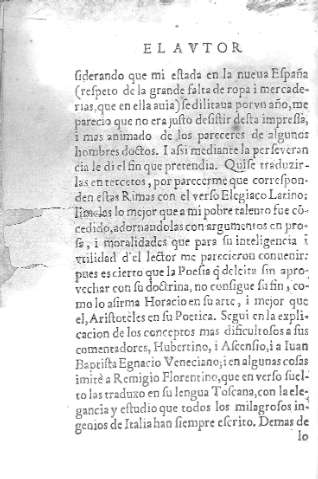 EL AVTOR
siderando que mi estada en la nueua España
(respeto de la grande falta de ropa i mercade-
rias, que en ella auia) se dilitaua por vn año, me
parecio que no era justo desistir desta impressa,
i mas animado de los pareceres de algunos
hombres doctos. I assi mediante la perseueran
cia le di el fin que pretendia. Quise traduzir-
las en tercetos, por parecerme que correspon-
den estas Rimas con el verso Elegiaco Latino;
limelas lo mejor que a mi pobre talento fue cō-
cedido, adornandolas con argumentos en pro-
sa, i moralidades que para su inteligencia i
vtilidad d'el lector me parecieron conuenir:
pues es cierto que la Poesia q̃ deleita sin apro-
vechar con su doctrina, no consigue su fin, co-
mo lo afirma Horacio en su arte, i mejor que
el, Aristoteles en su Poetica. Segui en la expli-
cacion de los conceptos mas dificultosos a sus
comentadores, Hubertino, i Ascensio, i a Iuan
Baptista Egnacio Veneciano; i en algunas cosas
imitè a Remigio Florentino, que en verso suel-
to las traduxo en su lengua Toscana, con la ele-
gancia y estudio que todos los milagrosos in-
genios de Italia han siempre escrito. Demas de
lo